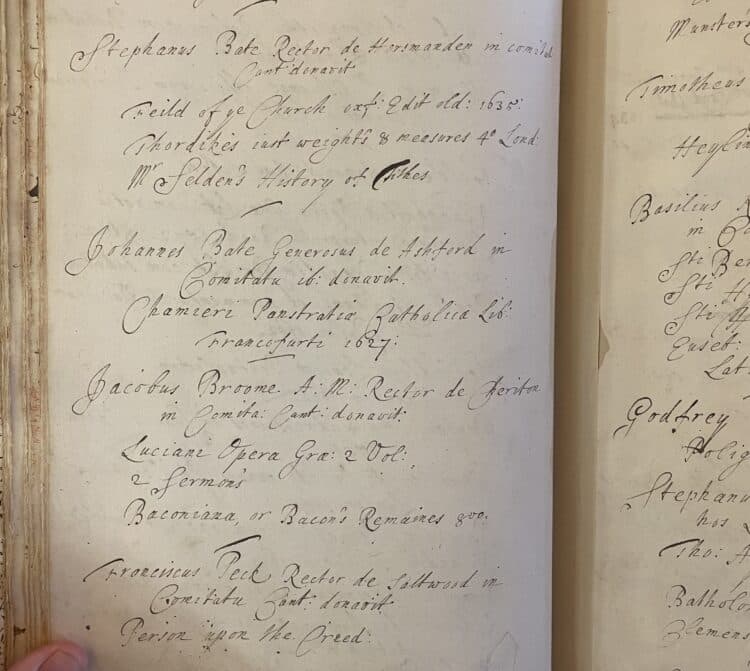 Stephanus Bate Rector de Horsmanden in comitat
Cant: donavit
Feild of ye Church oxf: Edit old: 1635:
Thordikes iust weights & measures 4° Lond:
Mr Selden's History of Tithes
Johannes Bate Generosus de Ashford in
Comitatu ib: donavit.
Chamieri Panstratia Catholica Lib:
Francofurti 1627:
Jacobus Broome A: M: Rector de Cheriton
in Comita: Cant: donavit:
Luciani Opera Græ: 2 Vol:
2 Sermons
Baconiana, or Bacon's Remaines 8vo.
Franciscus Peck Rector de Saltwood in
Comitatu Cant: donavit
Person upon the Creed:
Munster
Timotheus
Heylin
Basilius
in
Sti Ber
Sti H
Sti
Euseb:
Lat
Godfrey
Polig
Stephanu
hos L
Tho: A
Batholo
Clemens